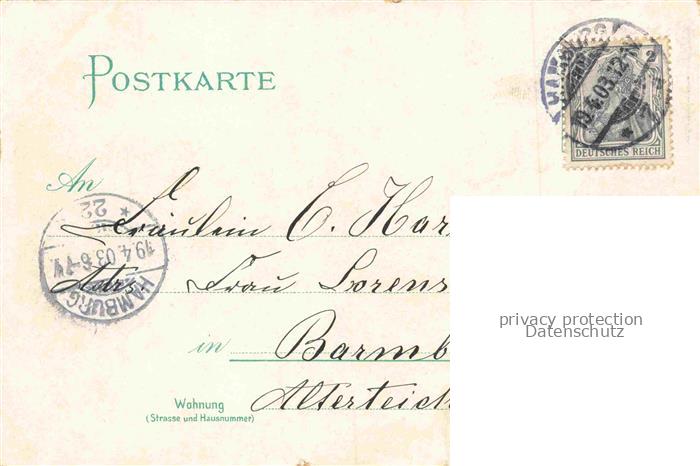 POSTKARTE
HAMBURG
19.4.03.12-1N
* 7
2
DEUTSCHES REICH
An
Fräulein C. Har
Adrs. Frau Lorens
in Barmb
Alterteich
Wohnung
(Strasse und Hausnummer)
HAMBURG
19.4.03.6-7V.
* 22
privacy protection
Datenschutz